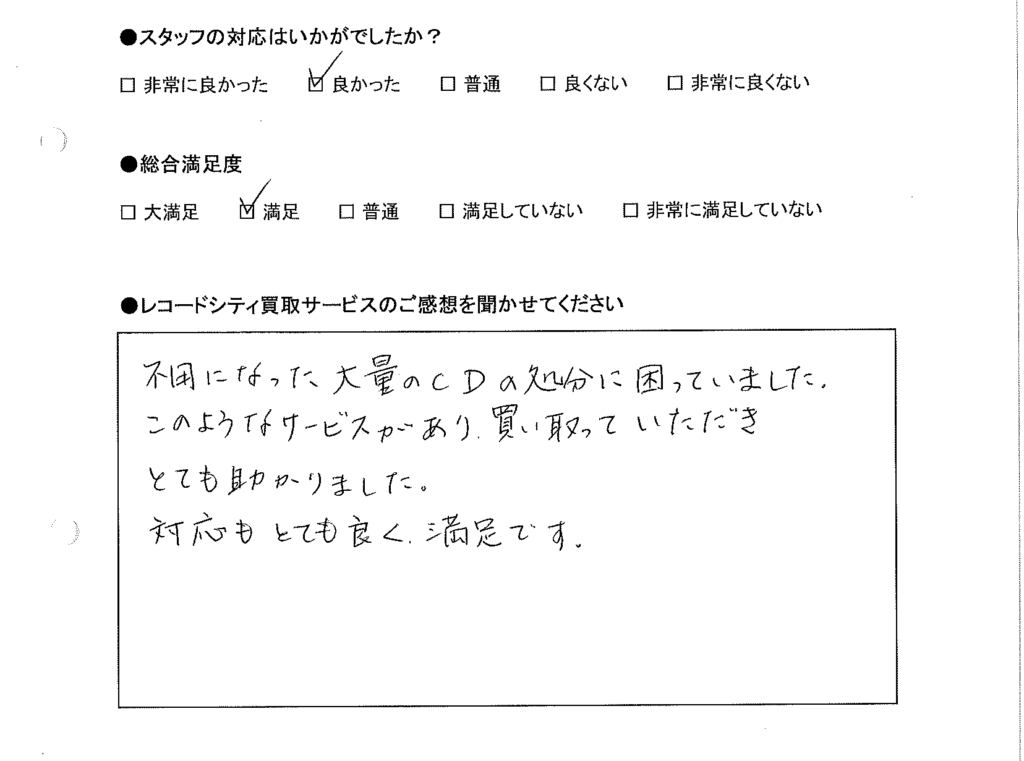 ●スタッフの対応はいかがでしたか？
□ 非常に良かった ☑ 良かった □ 普通 □ 良くない □ 非常に良くない
●総合満足度
□ 大満足 ☑ 満足 □ 普通 □ 満足していない □ 非常に満足していない
●レコードシティ買取サービスのご感想を聞かせてください
不用になった、大量のCDの処分に困っていました.
このようなサービスがあり、買い取っていただき
とても助かりました。
対応もとても良く、満足です.